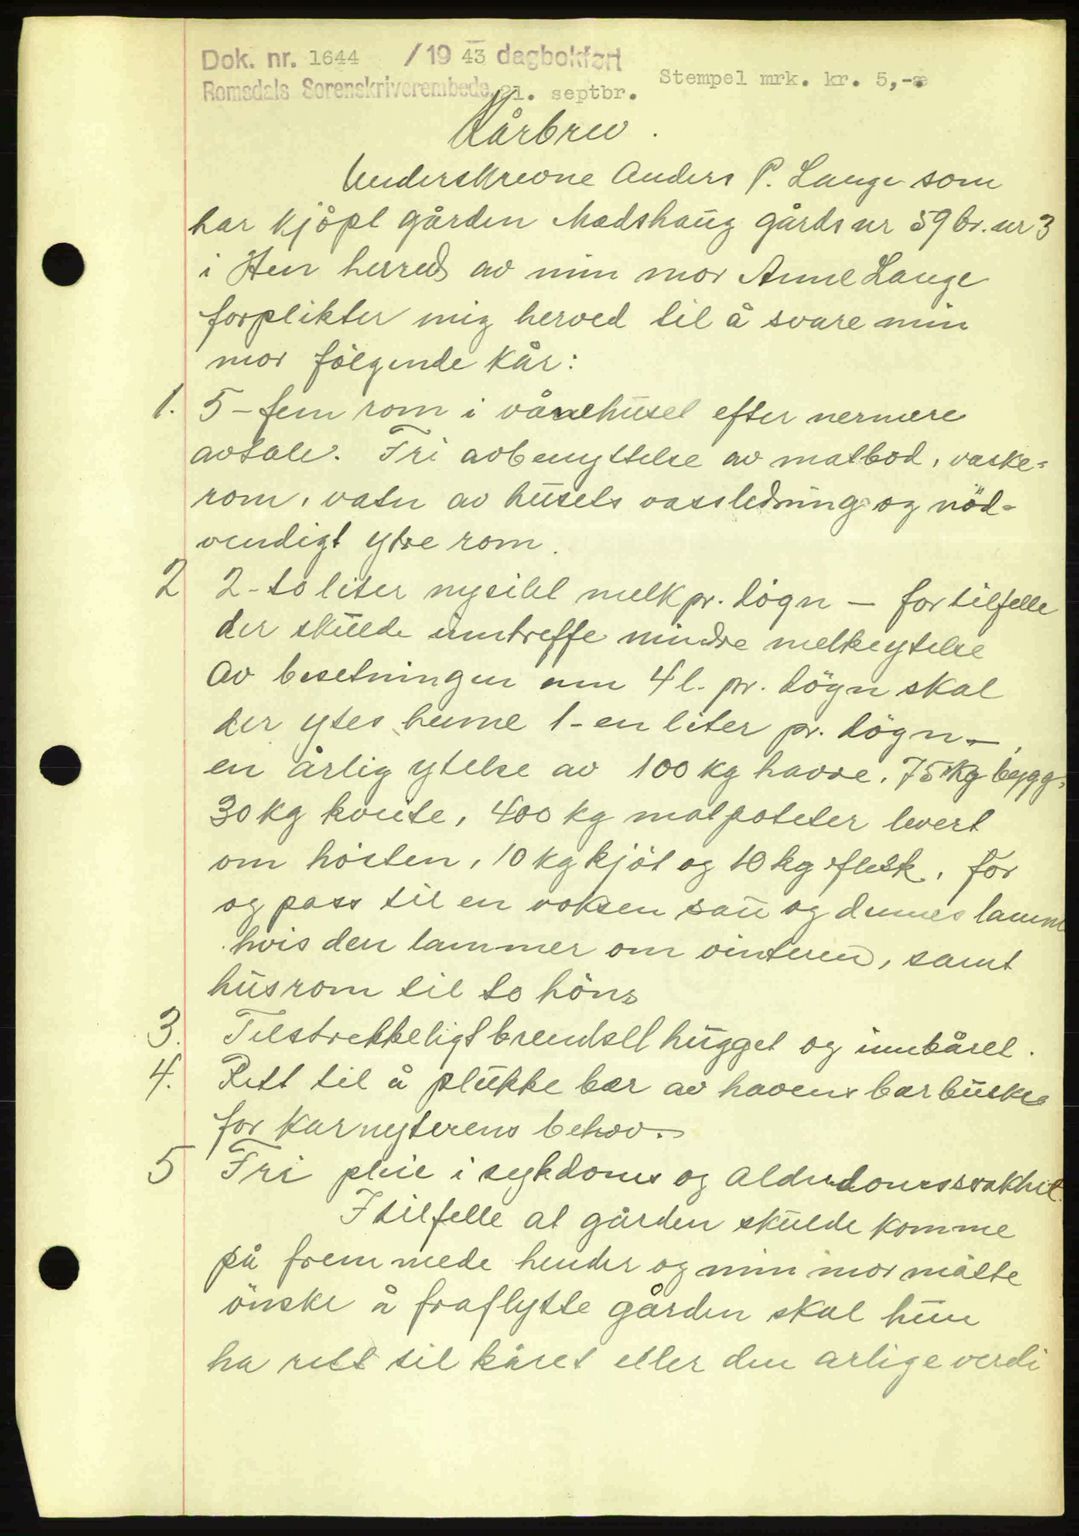 Dok. nr. 1644 / 19 43 dagbokført
Romsdals Sorenskriverembede, 21. septbr.
Stempel mrk. kr. 5,-
Kårbrev.
Underskrevne Anders P. Lange som
har kjöpt gården Madshaug gårds nr 59 br. nr 3
i Hen herred av min mor Anne Lange
forplikter mig herved til å svare min
mor fölgende kår:
1. 5 - fem rom i vånehuset efter nermere
avtale. Fri avbenyttelse av matbod, vaske-
rom, vatn av husets vassledning og nöd-
vendigt ytre rom.
2 2 - to liter nysilt melk pr. dögn — for tilfelle
der skulde inntreffe mindre melkeytelse
av besetningen enn 4 l. pr. dögn skal
der ytes henne 1 - en liter pr. dögn —,
en årlig ytelse av 100 kg havre, 75 kg bygg,
30 kg kveite, 400 kg matpoteter levert
om hösten, 10 kg kjöt og 10 kg flesk, för
og pass til en voksen sau og dennes lamm
hvis den lammer om vinteren, samt
husrom til to höns
3. Tilstrekkeligt brendsel hugget og innbåret.
4. Rett til å plukke bær av havens bærbuske
for kårnyterens behov.
5 Fri pleie i sykdoms og alderdomssvakhet
I tilfelle at gården skulde komme
på fremmede hender og min mor måtte
önske å fraflytte gården skal hun
ha rett til kåret eller den årlige verdi